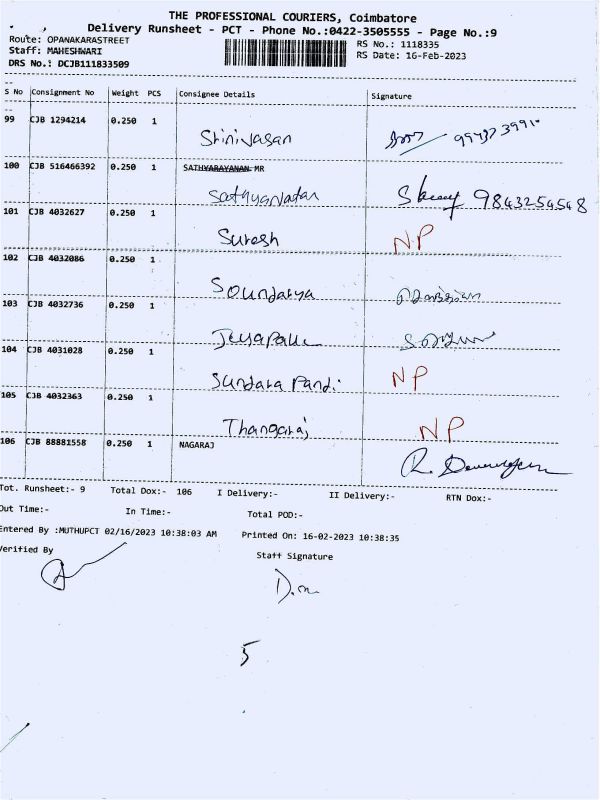 THE PROFESSIONAL COURIERS, Coimbatore
Delivery Runsheet - PCT - Phone No.:0422-3505555 - Page No.:9
Route: OPANAKARASTREET
RS No.: 1118335
Staff: MAHESHWARI
RS Date: 16-Feb-2023
DRS No.: DCJB111833509
S No Consignment No Weight PCS Consignee Details Signature
99 CJB 1294214 0.250 1
Srinivasan
100 CJB 516466392 0.250 1 SATHYARAYANAN MR
Sathyanatan 9843254548
101 CJB 4032627 0.250 1
Suresh NP
102 CJB 4032086 0.250 1
Soundarya
103 CJB 4032736 0.250 1
104 CJB 4031028 0.250 1
Sundara Pandi NP
105 CJB 4032363 0.250 1
Thangaraj NP
106 CJB 88881558 0.250 1 NAGARAJ
Tot. Runsheet:- 9 Total Dox:- 106 I Delivery:- II Delivery:- RTN Dox:-
Out Time:- In Time:- Total POD:-
Entered By :MUTHUPCT 02/16/2023 10:38:03 AM Printed On: 16-02-2023 10:38:35
Verified By Staff Signature
5